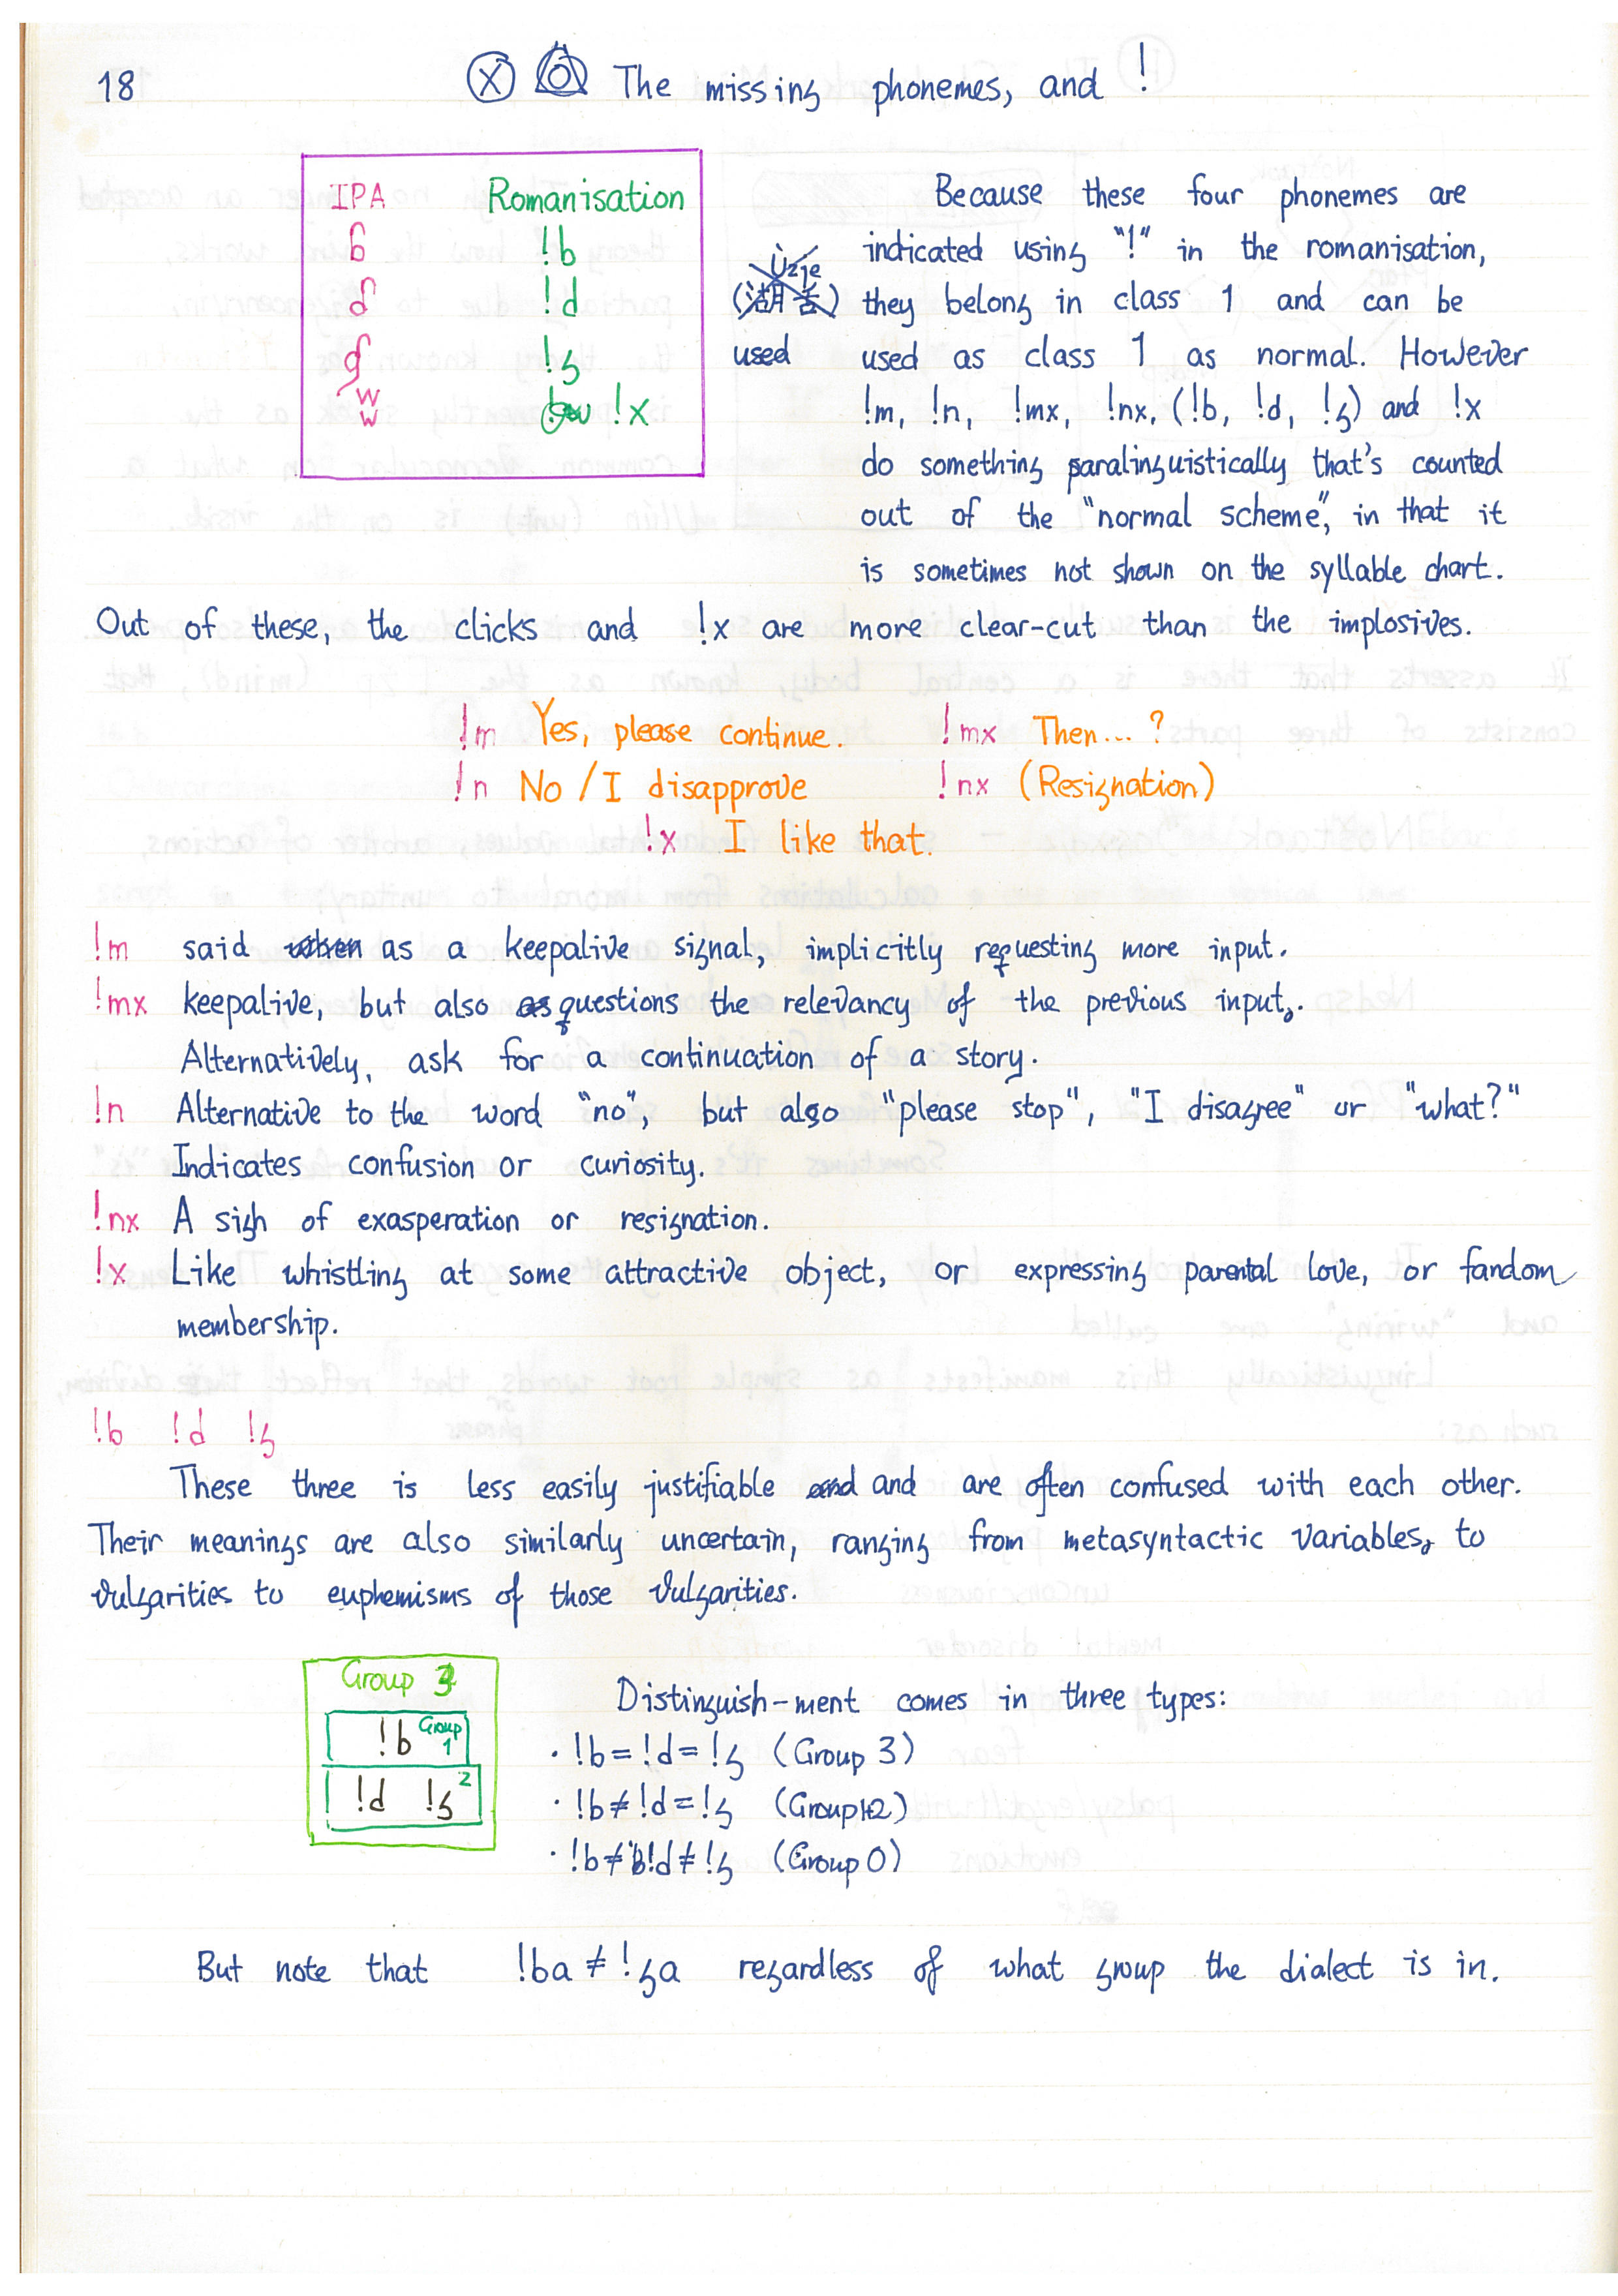 18
Ⓧ The missing phonemes, and !
IPA Romanisation
ɓ !b
ɗ !d
ɠ !g
ʬ !x
Because these four phonemes are
indicated using "!" in the romanisation,
Üzje
(湖舌) they belong in class 1 and can be
used used as class 1 as normal. However
!m, !n, !mx, !nx, (!b, !d, !g) and !x
do something paralinguistically that's counted
out of the "normal scheme", in that it
is sometimes not shown on the syllable chart.
Out of these, the clicks and !x are more clear-cut than the implosives.
!m Yes, please continue. !mx Then...?
!n No/I disapprove !nx (Resignation)
!x I like that.
!m said when as a keepalive signal, implicitly requesting more input.
!mx keepalive, but also as questions the relevancy of the previous input.
Alternatively, ask for a continuation of a story.
!n Alternative to the word "no", but also "please stop", "I disagree" or "what?"
Indicates confusion or curiosity.
!nx A sigh of exasperation or resignation.
!x Like whistling at some attractive object, or expressing parental love, or fandom
membership.
!b !d !g
These three is less easily justifiable and and are often confused with each other.
Their meanings are also similarly uncertain, ranging from metasyntactic variables, to
vulgarities to euphemisms of those vulgarities.
Group 3
!b Group 1
!d !g 2
Distinguish-ment comes in three types:
· !b=!d=!g (Group 3)
· !b≠!d=!g (Group1+2)
· !b≠!d≠!g (Group 0)
But note that !ba≠!ga regardless of what group the dialect is in.